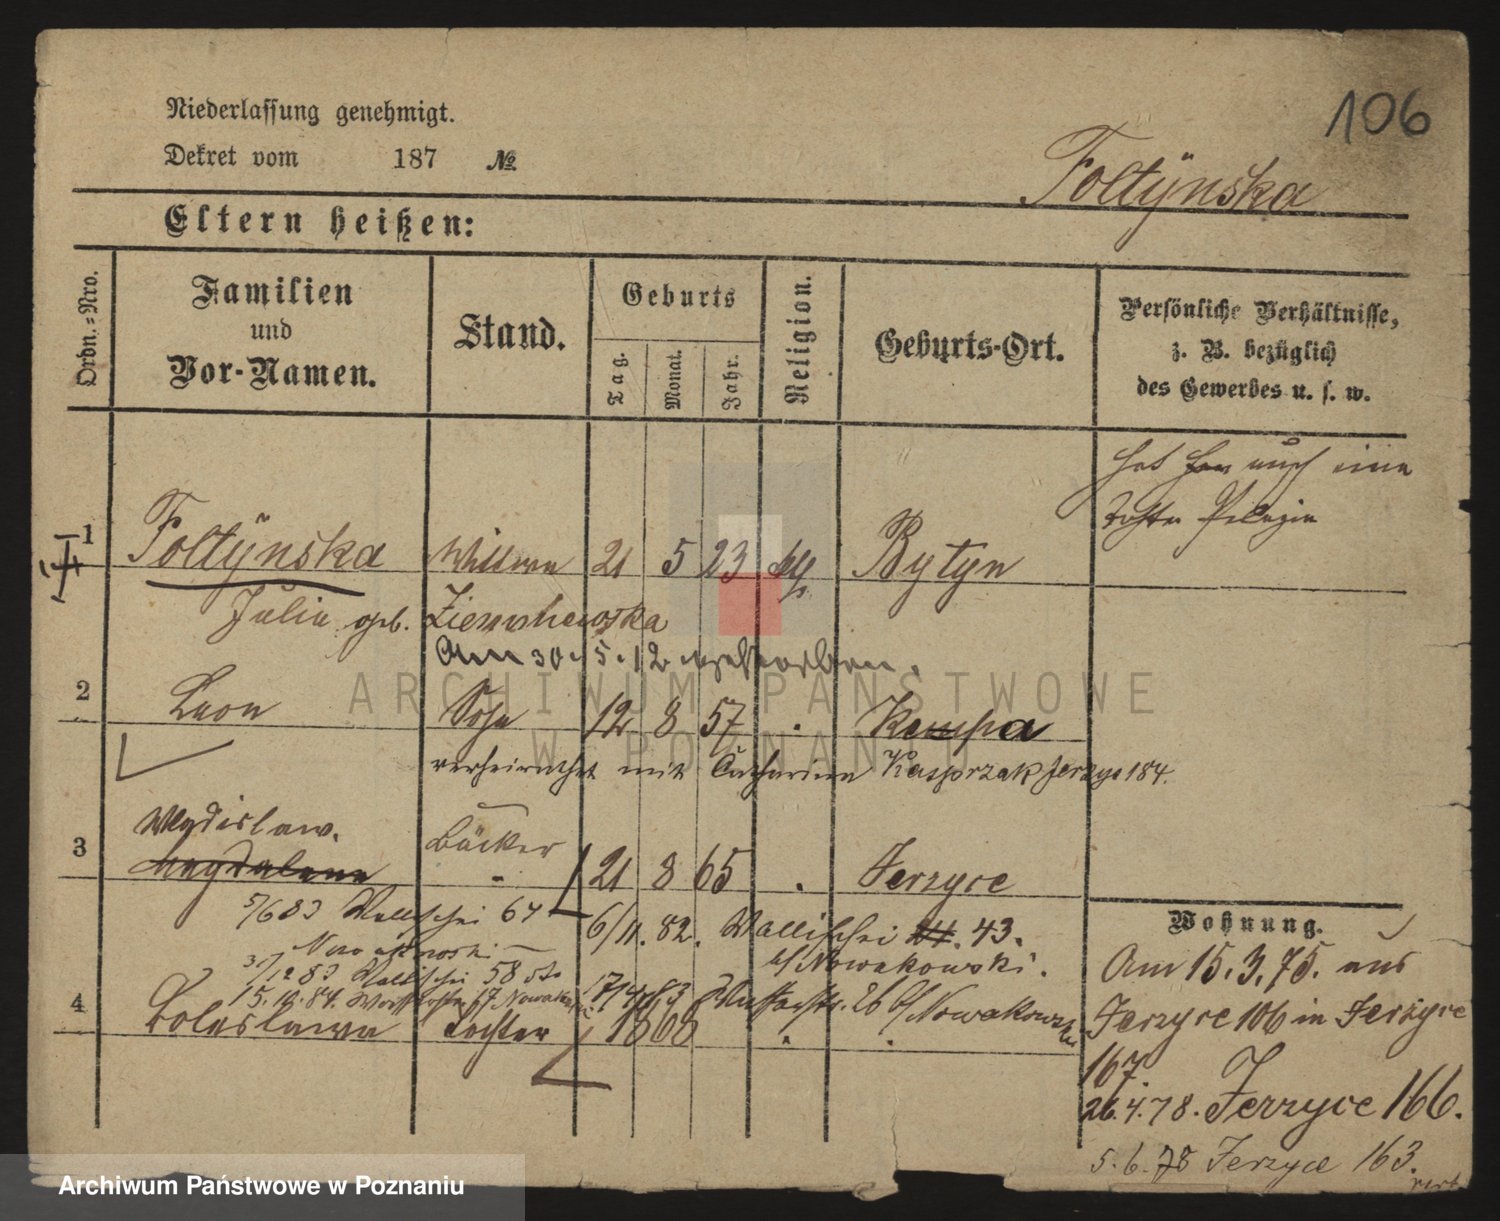 106
Niederlassung genehmigt.
Dekret vom 187 №.
Foltÿnska
Eltern heißen:
Ordn.-Nro.
Familien
und
Vor-Namen.
Stand.
Geburts
Tag.
Monat.
Jahr.
Religion.
Geburts-Ort.
Persönliche Verhältnisse,
z. B. bezüglich
des Gewerbes u. s. w.
hat noch eine
Tochter Pelagia
1 Foltÿnska Wittwe 21 5 23 kth Bytyn
Julia geb. Ziemkowska
Am 30.5.12 gestorben.
2 Leon Sohn 12 8 57 . Kempa
verheirathet mit Catharina Kasprzak Jerzyce 184.
Wladislaw.
3 Magdalena Bäcker 21 8 65 . Jerzyce
5/6 83 Wallischei 67
6/11. 82. Wallischei 43.
b/ Nowakowski.
3/12 83 Wallischei 58
15.10.84.
17/4 63 26 b/ Nowakowski
4 Boleslawa Tochter 1868
Wohnung.
Am 15.3.75. aus
Jerzyce 106 in Jerzyce
167.
26.4.78. Jerzyce 166.
5.6.78 Jerzyce 163.
ARCHIWUM PAŃSTWOWE
W POZNANIU
Archiwum Państwowe w Poznaniu